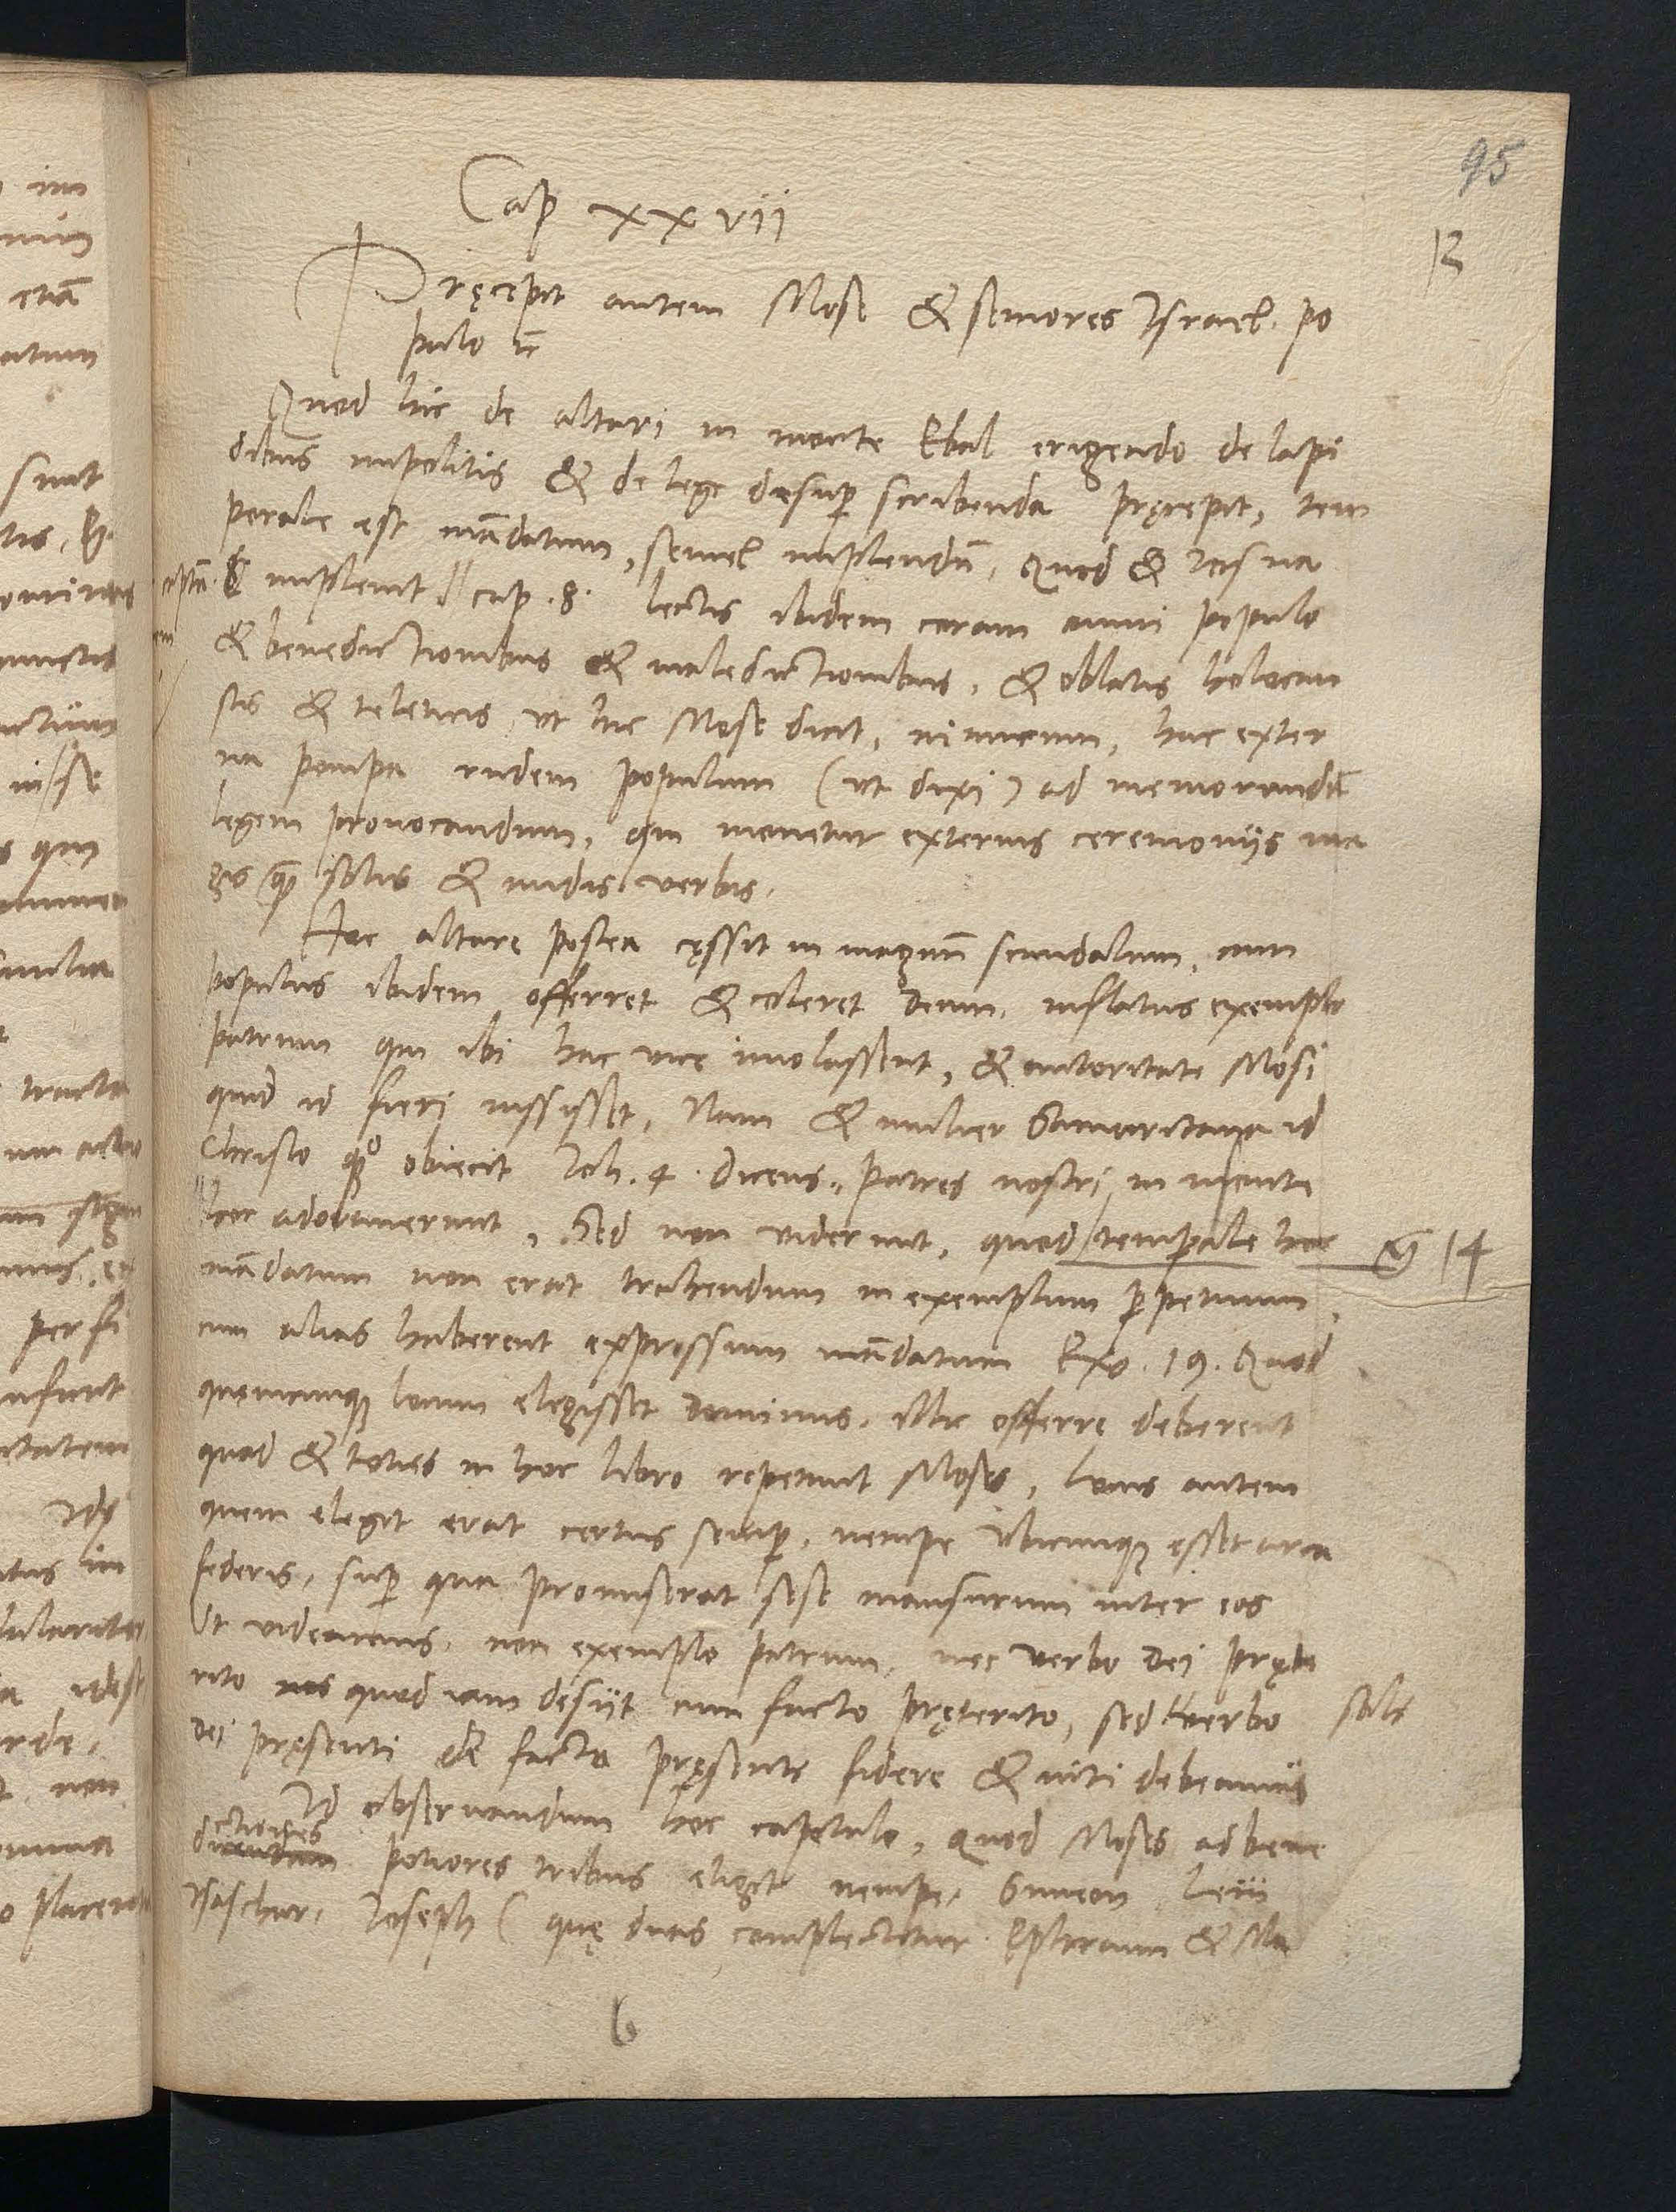 95
12
Cap xxvii
Pręcępit autem Mose & seniores Israel. po
pulo &c
Quod hic de altari in monte Ebal erigendo de lapi
dibus impolitis & de lege desup scribenda pręcepit, tem
porale est mādatum, semel implendū, Quod & Iosua
& impleuit cap .8. lectis ibidem coram omni populo
& benedictionibus & maledictionibus, & oblatis holocau
stis & teleticis, ut hic Mose dicit, nimirum, hac exter
na pompa rudem populum (ut dixi) ad memorandā
legem prouocandum, qui mouetur externis ceremonijs ma
gis quā solis & nudis verbis.
Hoc altarę postea cęssit in magnū scandalum, cum
populus ibidem offerret & coleret Deum, inflatus exemplo
patrum qui ibi hac vice immolassent, & autoritate Mosi
quod id fieri iussisset, Nam & mulier Samaritana id
Christo obiecit Ioh. 4. dicens. „ patres nostri in monte
„ hoc adorauerunt, Sed non viderunt, quod temporale hoc 14
mādatum non erat trahendum in exemplum ppetuum,
cum alias haberent expressum mādatum Exo. 19. Quod
quęmcunque locum elegisset Dominus, illic offerrę deberent
quod & toties in hoc libro repetiuit Moses, Locus autem
quem elegit erat certus semp, nempe vbicunque esset arca
federis, sup qua promiserat sese mansurum inter eos
Ut videamus, non exemplo patrum, nec verbo Dei pręte
rito quod iam desijt cum facto pręterito, sed verbo soli
Dei pręsenti & facto pręsenti fidere & niti debeamus
Id obseruandum hoc capitulo, quod Moses ad bene
dictiones potiores tribus elegit nempe, Simeon Leui
Isaschar, Ioseph (quę duas complectitur Ephraim & Ma
6